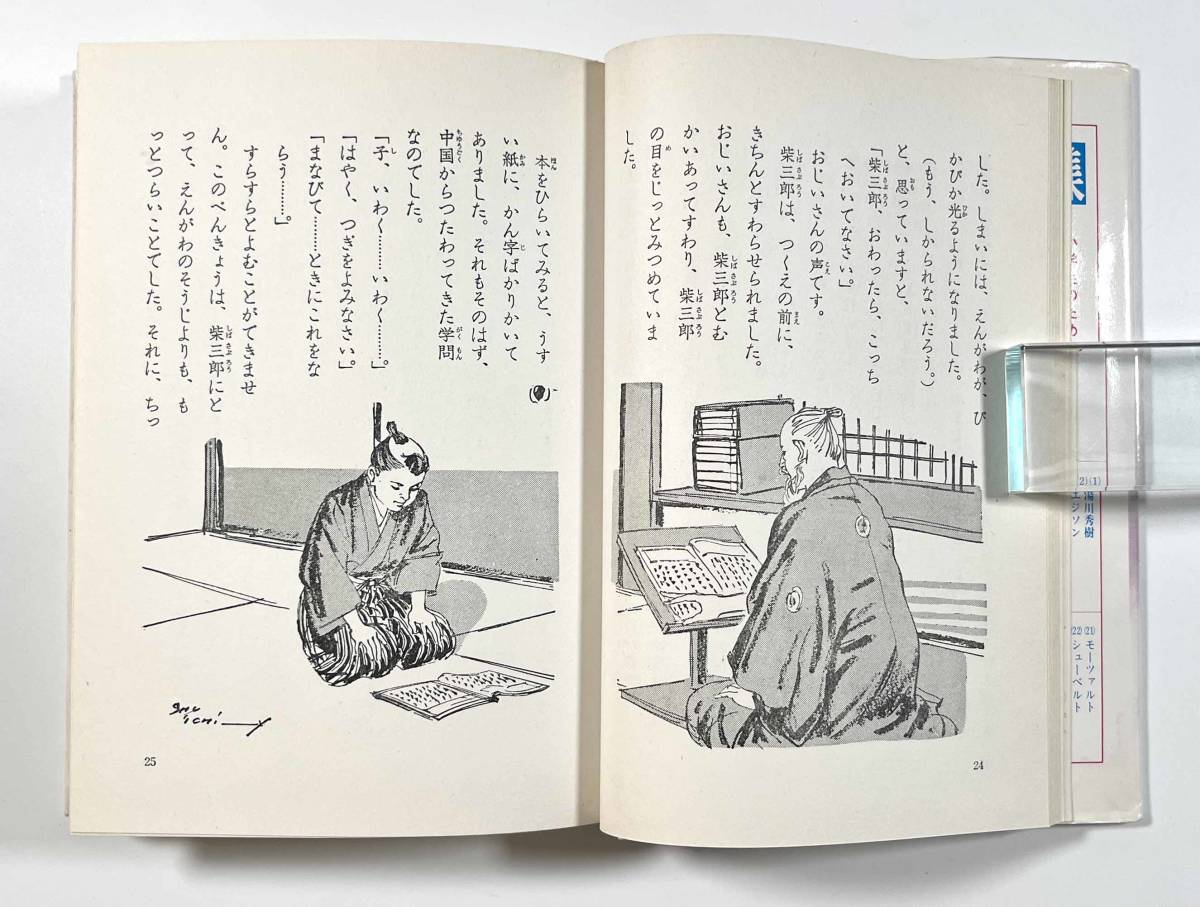 した。しまいには、えんがわが、ぴ
かぴか光るようになりました。
(もう、しかられないだろう。)
と、思っていますと、
「柴三郎、おわったら、こっち
へおいでなさい。」
おじいさんの声です。
柴三郎は、つくえの前に、
きちんとすわらせられました。
おじいさんも、柴三郎とむ
かいあってすわり、柴三郎
の目をじっとみつめていま
した。
24
本をひらいてみると、うす
い紙に、かん字ばかりかいて
ありました。それもそのはず、
中国からつたわってきた学問
なのでした。
「子、いわく……いわく……。」
「はやく、つぎをよみなさい。」
「まなびて……ときにこれをな
らう……。」
すらすらとよむことができませ
ん。このべんきょうは、柴三郎にと
って、えんがわのそうじよりも、も
っとつらいことでした。それに、ちっ
25
(1)湯川秀樹
(2)エジソン
(21)モーツァルト
(22)シューベルト